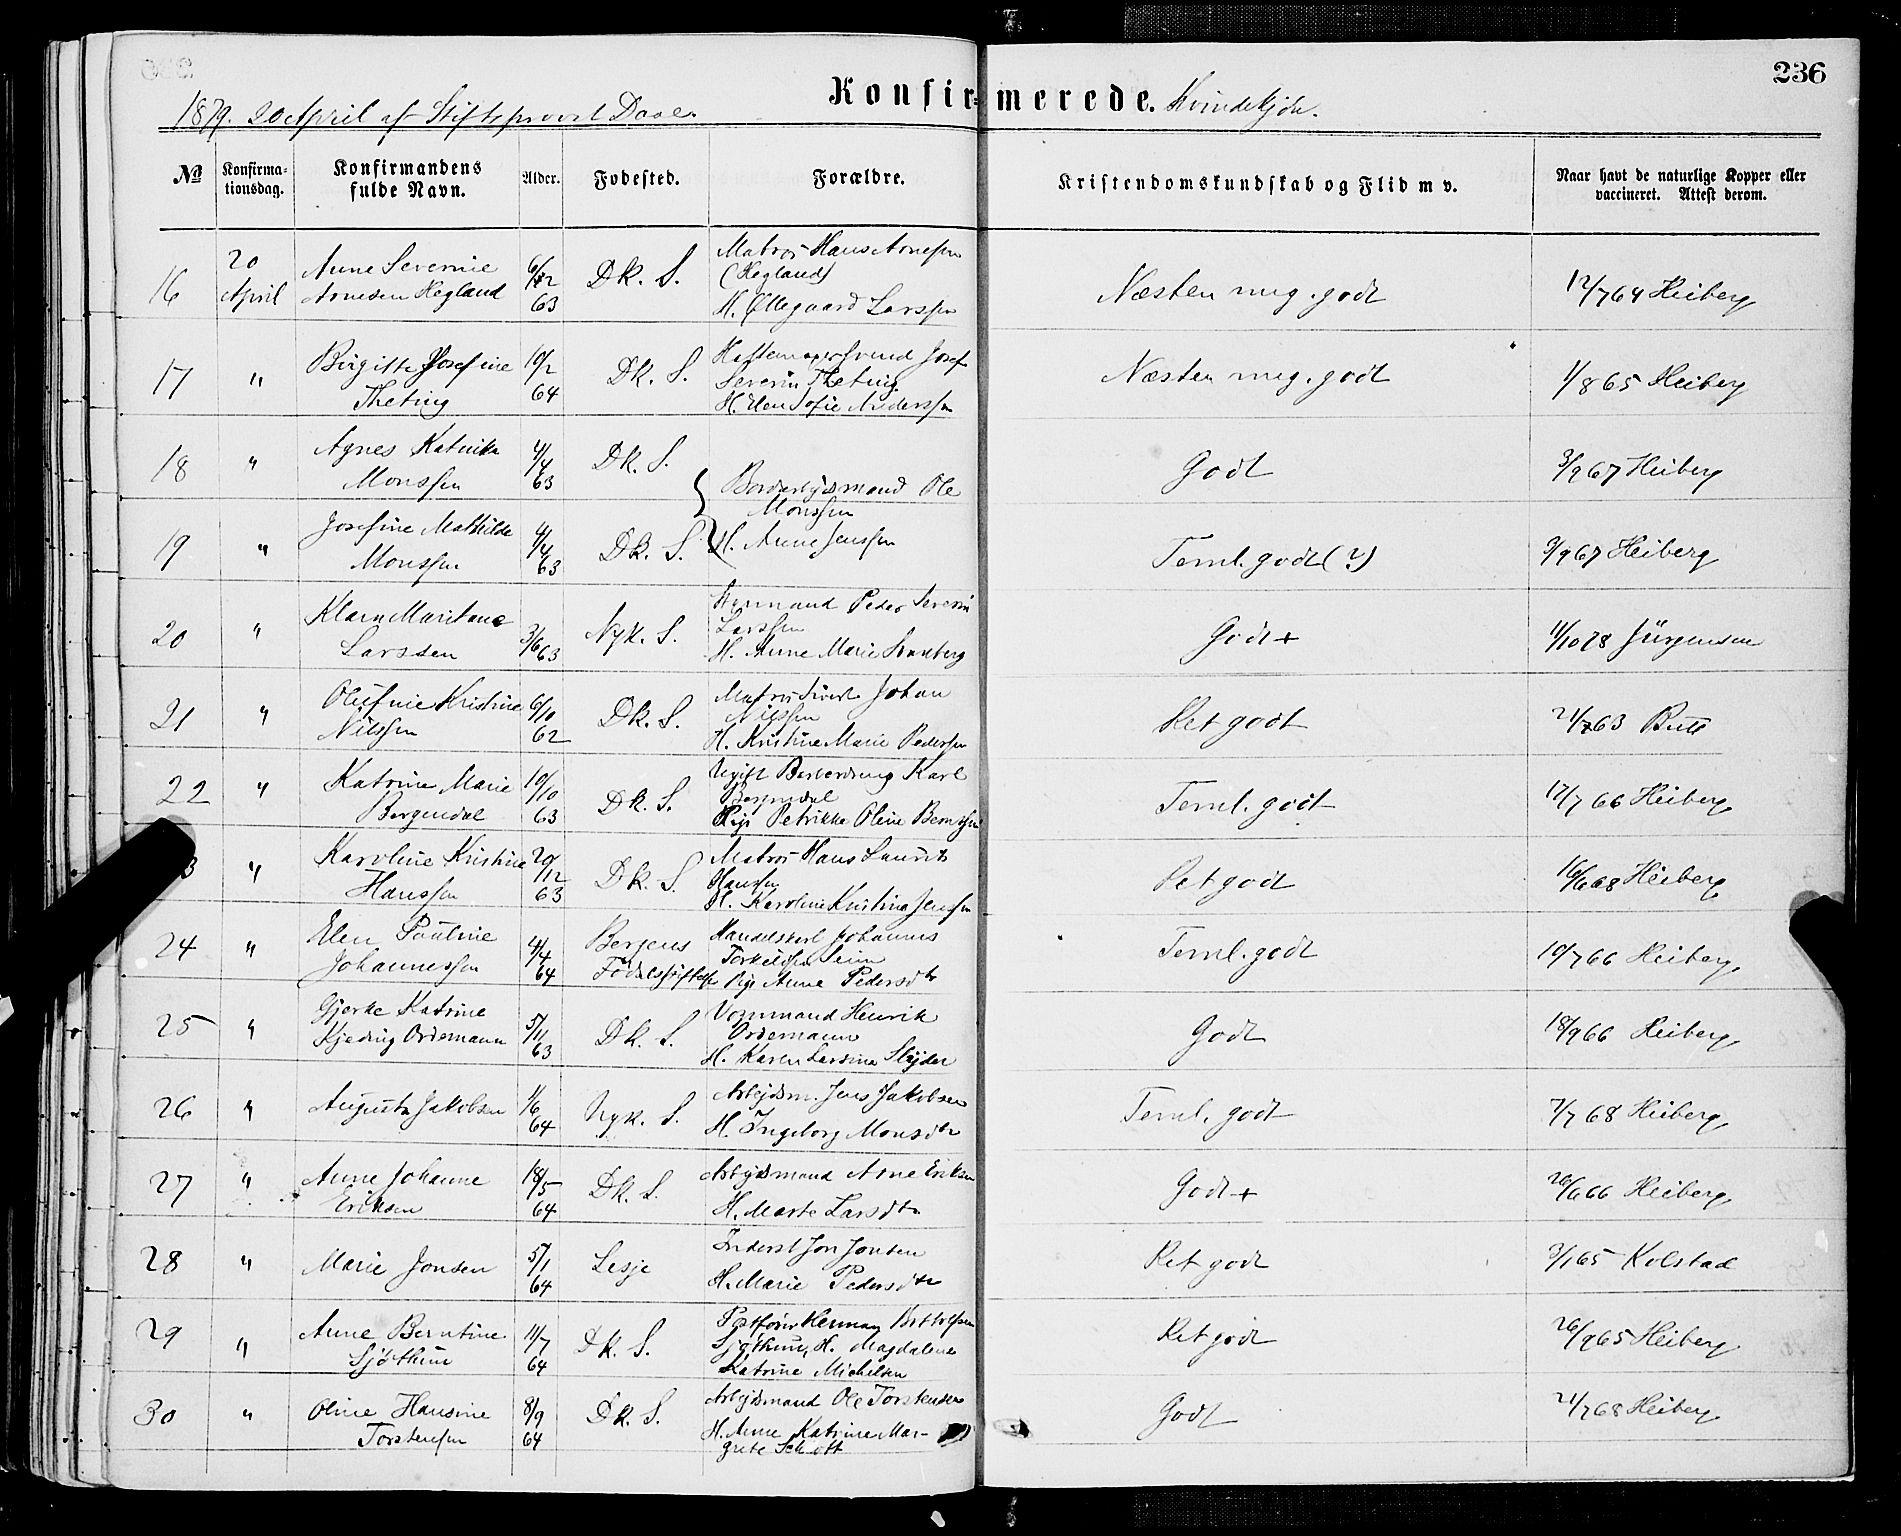 236
Konfirmerede. Kvindekjön.
1879. 20 April af Stiftsprovst Daae.
No
Konfirma-
tionsdag.
Konfirmandens
fulde Navn.
Alder.
Fødested.
Forældre.
Kristendomskundskab og Flid m v.
Naar havt de naturlige Kopper eller
vaccineret. Attest derom.
16 20 April Anne Severine Arnesen Hegland 6/12 63 Dk. S. Matros Hans Arnesen (Hegland) H. Ollegaard Larssen Næsten meg. godt 12/7 64 Heiberg
17 " Birgitte Josefine Theting 10/2 64 Dk. S. Hattemagersvend Josef Severin Theting H. Elen Sofie Anderssen Næsten meg. godt 1/8 65 Heiberg
18 " Agnes Katrika Monssen 4/4 63 Dk. S. Bordarbejdsmand Ole Monssen Godt 3/9 67 Heiberg
19 " Josefine Mathilde Monssen 4/4 63 Dk. S. H. Anne Jenssen Teml. godt (?) 3/9 67 Heiberg
20 " Klara Maritane Larssen 3/6 63 Nyk. S. Peder Severin Larssen H. Anne Marie Godt + 11/10 78 Jürgensen
21 " Olefine Kristine Nilssen 6/10 62 Dk. S. Matros Sivert Johan Nilssen H. Kristine Marie Pederssen Ret godt 21/7 63
22 " Katrine Marie Bergendal 10/10 63 Dk. S. Ugift Karl Bergendal Pige Petrikke Oline Berntsen Teml. godt 17/7 66 Heiberg
" Karoline Kristine Hanssen 29/12 63 Dk. S. Matros Hans Laurits Hanssen H. Karoline Kristina Jenssen Ret godt 16/6 68 Heiberg
24 " Elen Pauline Johannessen 4/4 64 Bergens Fødselsstiftelse Handelskarl Johannes Torkildsen Pige Anne Pedersdtr Teml. godt 10/7 66 Heiberg
25 " Gjerke Katrine Kjeding Ordemann 5/11 63 Dk. S. Vognmand Henrik Ordemann H. Karen Larsine Slyder Godt 18/9 66 Heiberg
26 " Augusta Jakobsen 1/6 64 Nyk. S. Arbejdsm. Jens Jakobsen H. Ingeborg Monsdtr Teml. godt 7/7 68 Heiberg
27 " Anne Johanne Eriksen 18/5 64 Dk. S. Arbejdsmand Arne Eriksen H. Marte Larsdtr Godt + 26/6 66 Heiberg
28 " Marie Jonsen 5/1 64 Lesje Inderst Jon Jonsen H. Marie Pedersdtr Ret godt 3/1 65 Kolstad
29 " Anne Berntine Sjöthun 11/7 64 Dk. S. Herman Sjöthun, H. Magdalene Katrine Michelsen Ret godt 26/9 65 Heiberg
30 " Oline Hansine Torstensen 8/9 64 Dk. S. Arbejdsmand Ole Torstensen H. Anne Katrine Mar-
grete Schott Godt 21/7 68 Heiberg